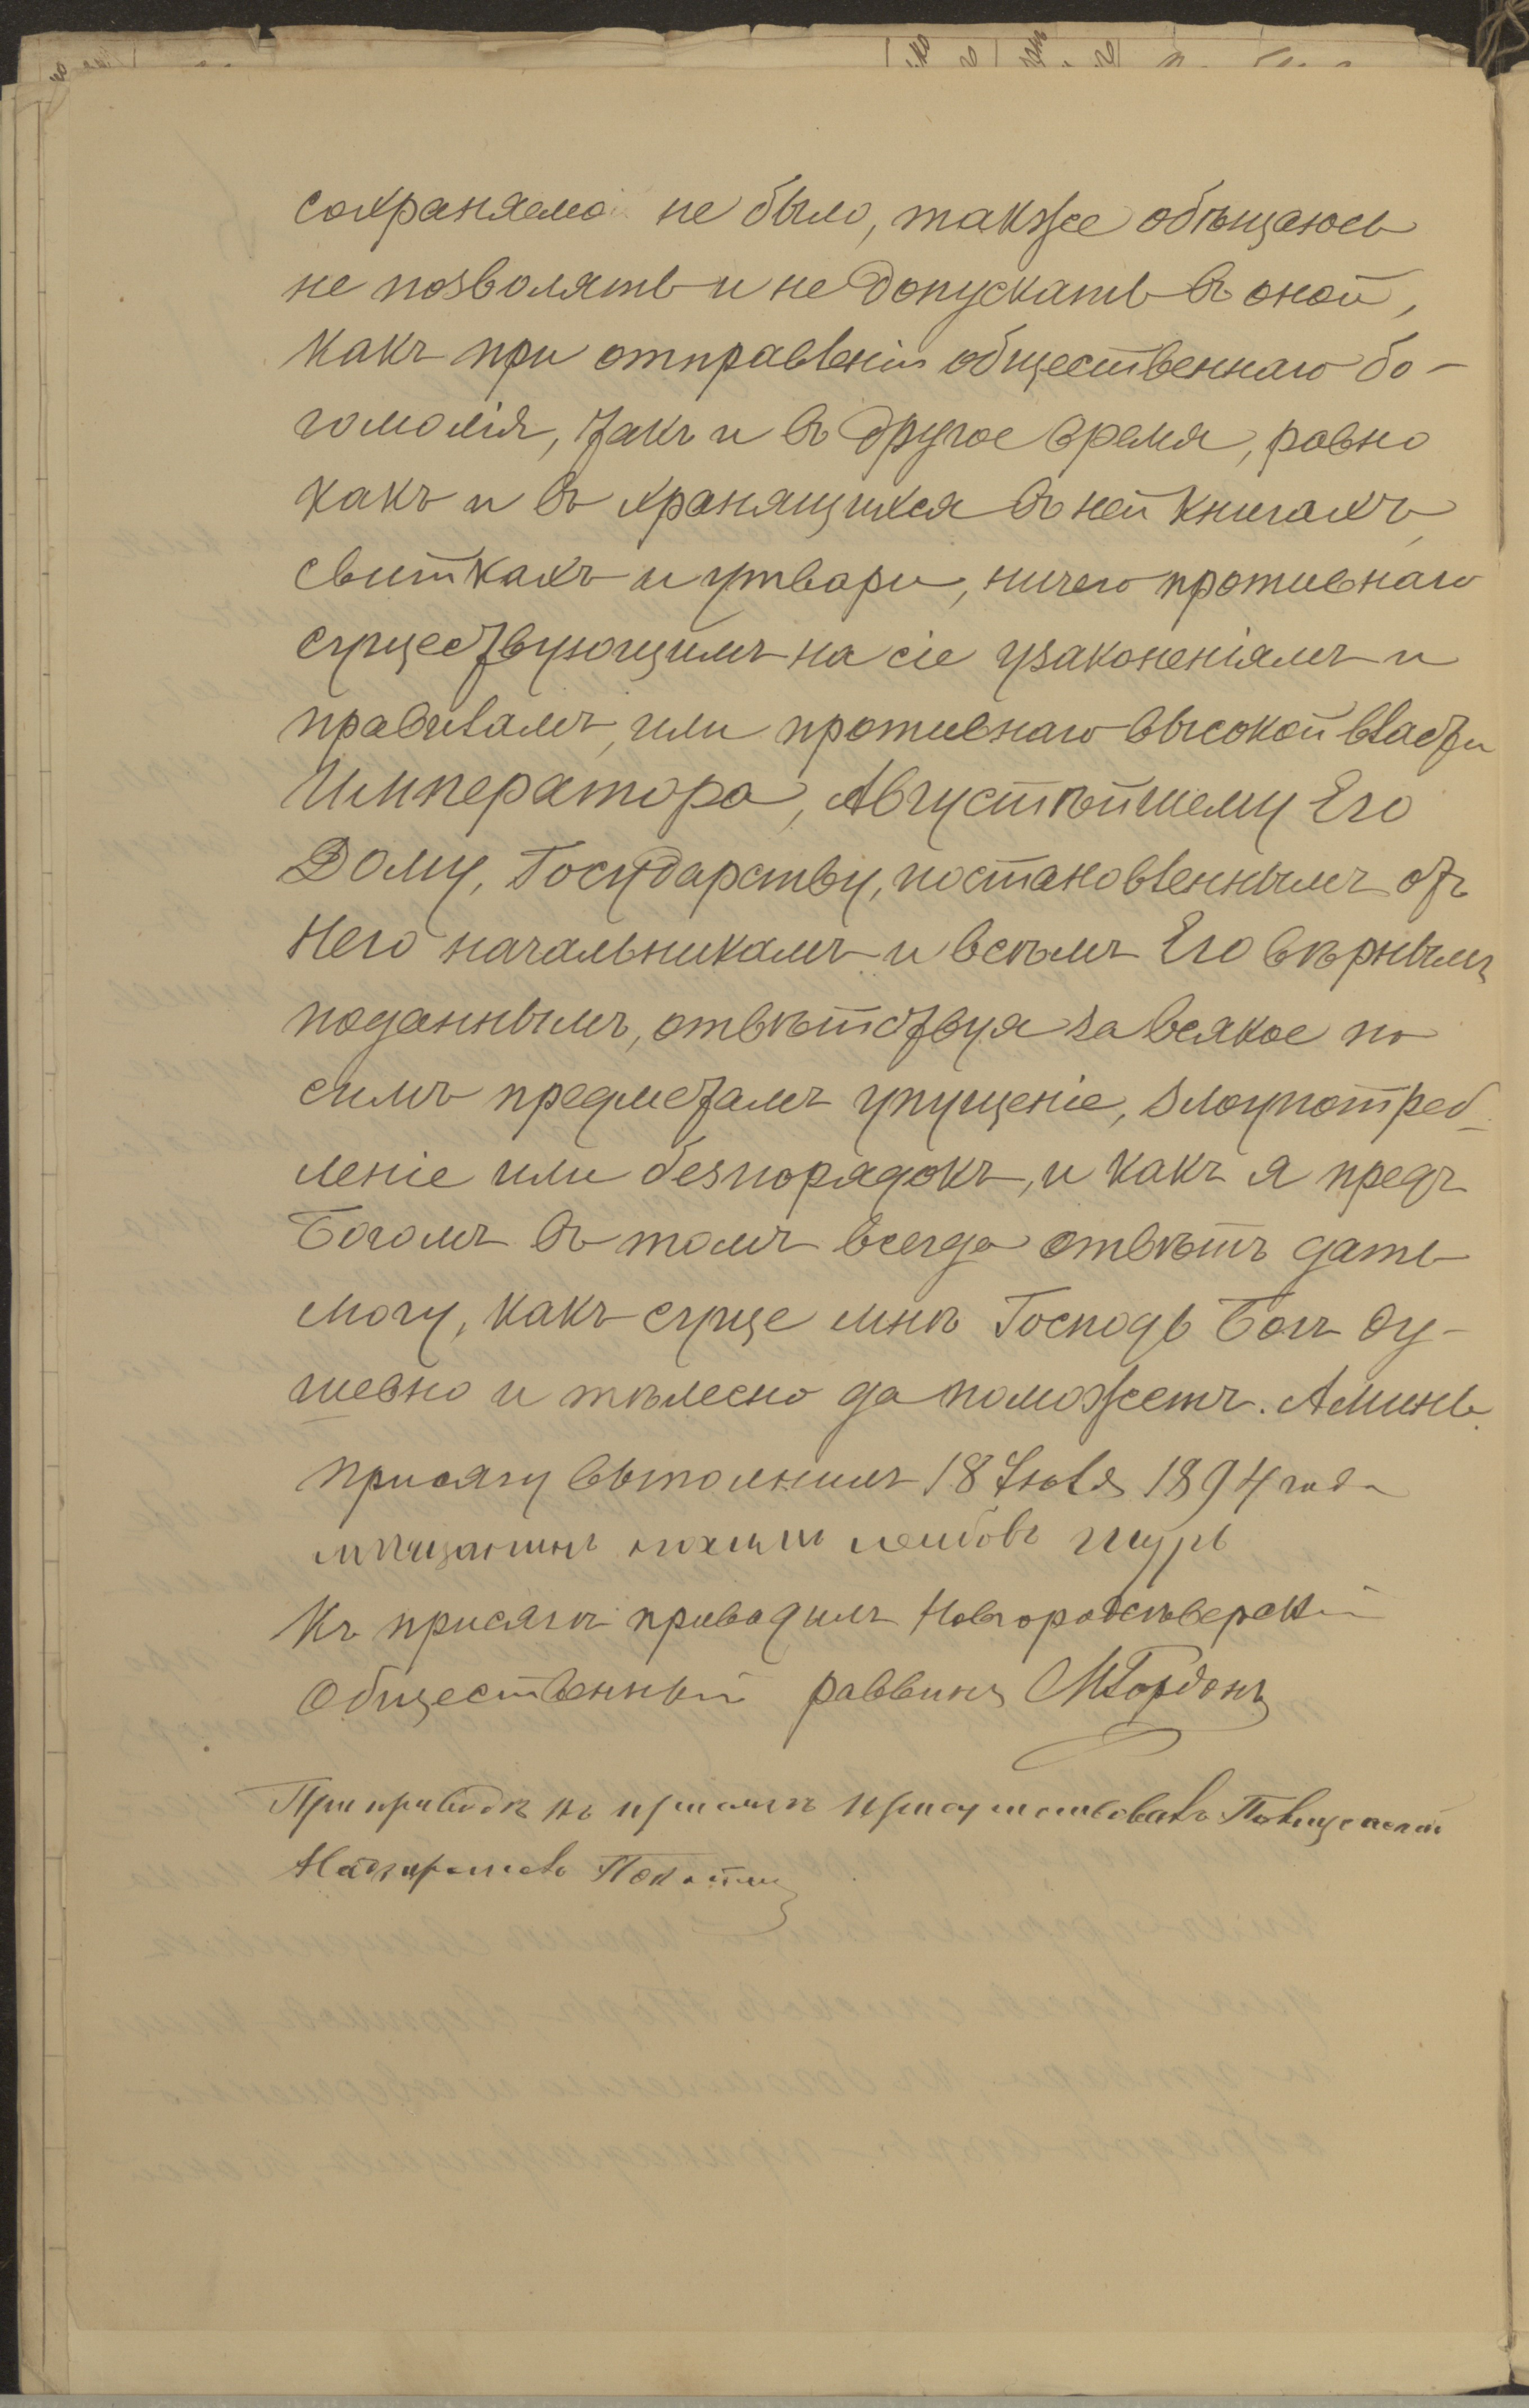 сохраняемо не было, также обѣщаюсь
не позволять и не допускать въ оной,
какъ при отправленіи общественнаго бо-
гомолія, такъ и въ другое время, равно
какъ и въ хранящихся въ ней книгахъ,
свиткахъ и утвари, ничего противнаго
существующимъ на сіе узаконеніямъ и
правиламъ, или противнаго высокой власти
Императора, Августѣйшему Его
Дому, Государству, постановленнымъ отъ
Него начальникамъ и всѣмъ Его вѣрнымъ
поданнымъ, отвѣтствуя за всякое по
симъ предметамъ упущеніе, злоупотреб-
леніе или безпорядокъ, и какъ я предъ
Богомъ въ томъ всегда отвѣтъ дать
могу, какъ суще мнѣ Господь Богъ ду-
шевно и тѣлесно да поможетъ. Аминь.
Присягу выполнилъ 18 Іюля 1894 года
мѣщанинъ лейбовъ
Къ присягѣ приводилъ Новгородсѣверскій
Общественный раввинъ МГордонъ
При приводѣ къ присягѣ присутствовалъ Полицейскій
Надзиратель